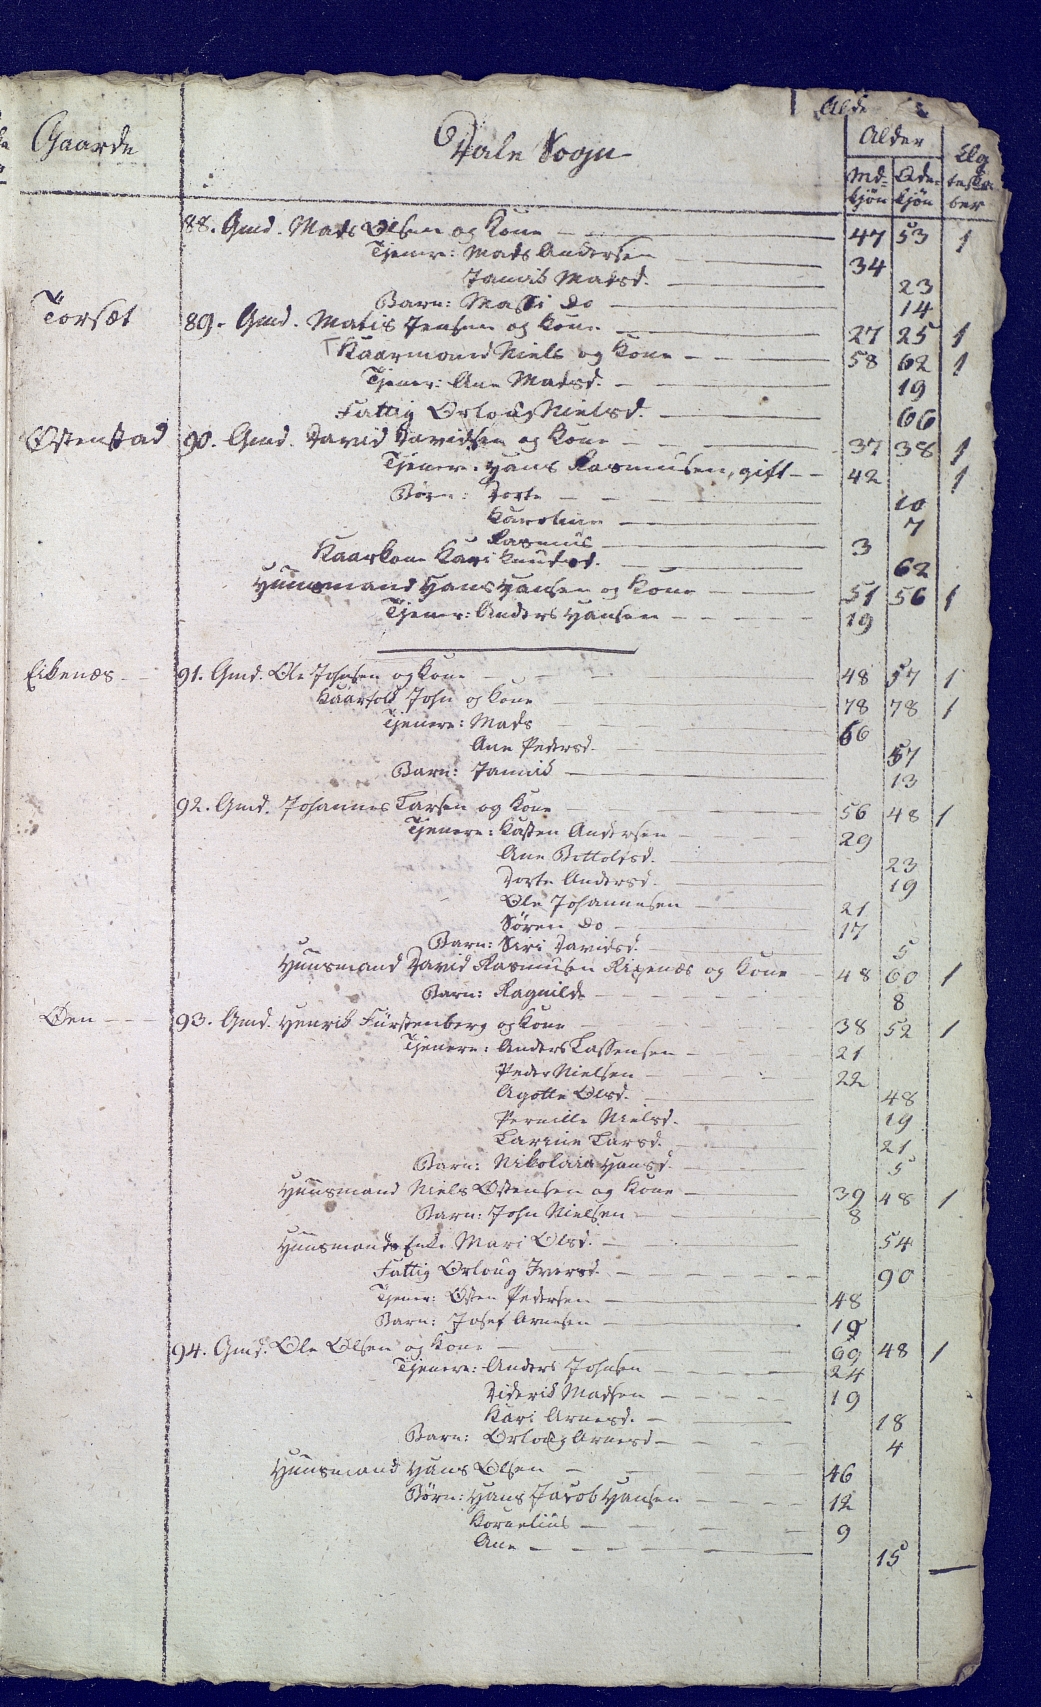 Alder
Gaarde Dale Sogn Alder Eg
Md- Qde- teska-
kjøn kjøn ber
88. Gmd. Mads Olsen og Kone 47 53 1
Tjenere: Mads Andersen 34
Jannik Madsd. 23
Barn: Massi do 14
Torsæt 89. Gmd. Matis Jensen og Kone 27 25 1
Kaarmand Niels og Kone 58 62 1
Tjener: Ane Madsd. 19
Fattig Orloug Nielsd. 66
Østenstad 90. Gmd. David Davidsen og Kone 37 38 1
Tjenere: Hans Rasmusen, gift 42 1
Børn: Dorte 10
Karoline 7
Rasmus 3
Kaarkone Kari Knudsd. 62
Huusmand Hans Hansen og Kone 51 56 1
Tjener: Anders Hansen 19
Eikenæs 91. Gmd. Ole Johnsen og Kone 48 57 1
Kaarfolk John og Kone 78 78 1
Tjenere: Mads 66
Ane Pedersd. 57
Barn: Jannik 13
92. Gmd. Johannes Larsen og Kone 56 48 1
Tjenere: Kasten Andersen 29
Ane Bottolfsd. 23
Dorte Andersd. 19
Ole Johannesen 21
Søren do 17
Barn: Siri Davidsd. 5
Huusmand David Rasmusen Ripenæs og Kone 48 60 1
Barn: Ragnilde 8
Øen 93. Gmd. Henrik Fürstenberg og Kone 38 52 1
Tjenere: Anders Lassensen 21
Peder Nielsen 22
Agotte Olsd. 48
Pernille Nielsd. 19
Larine Larsd. 21
Barn: Nikolaia Hansd. 5
Huusmand Niels Østensen og Kone 39 48 1
Barn: John Nielsen 8
Huusmands Enke Mari Olsd. 54
Fattig Orloug Iversd. 90
Tjener: Østen Pedersen 48
Barn: Josef Arnesen
94. Gmd. Ole Olsen og Kone 69 48 1
Tjenere: Anders Johnsen 24
Diderik Madsen 19
Kari Arnesd. 18
Barn: Orloug Arnesd 4
Huusmand Hans Olsen 46
Børn: Hans Jacob Hansen 12
Kornelius 9
Ane 15